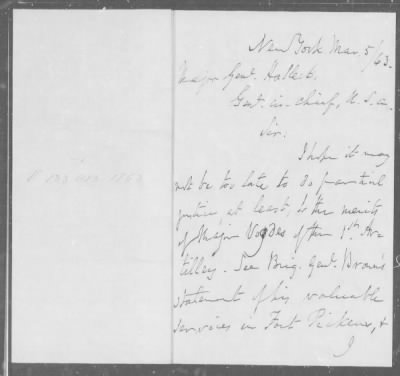 New York Mar. 5/63.
Major Genl. Halleck.
Genl. in-chief, U. S. A.
Sir.
I hope it may
not be too late to do partial
justice, at least, to the merits
of Major Vogdes of the 1st. Ar-
tillery. See Brig. Genl. Brown's
statement of his valuable
services in Fort Pickens, &
I